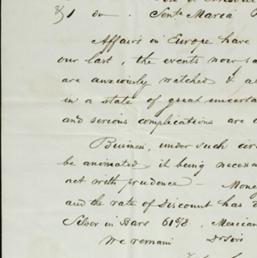 1 do Santa Maria
Affairs in Europe have
our last, the events now
are anxiously watched &
in a state of great uncerta
and serious complications are
Business, under such
be animated it being necess
act with prudence - Mone
and the rate of Discount has
Silver in Bars 61 Mexican
We remain